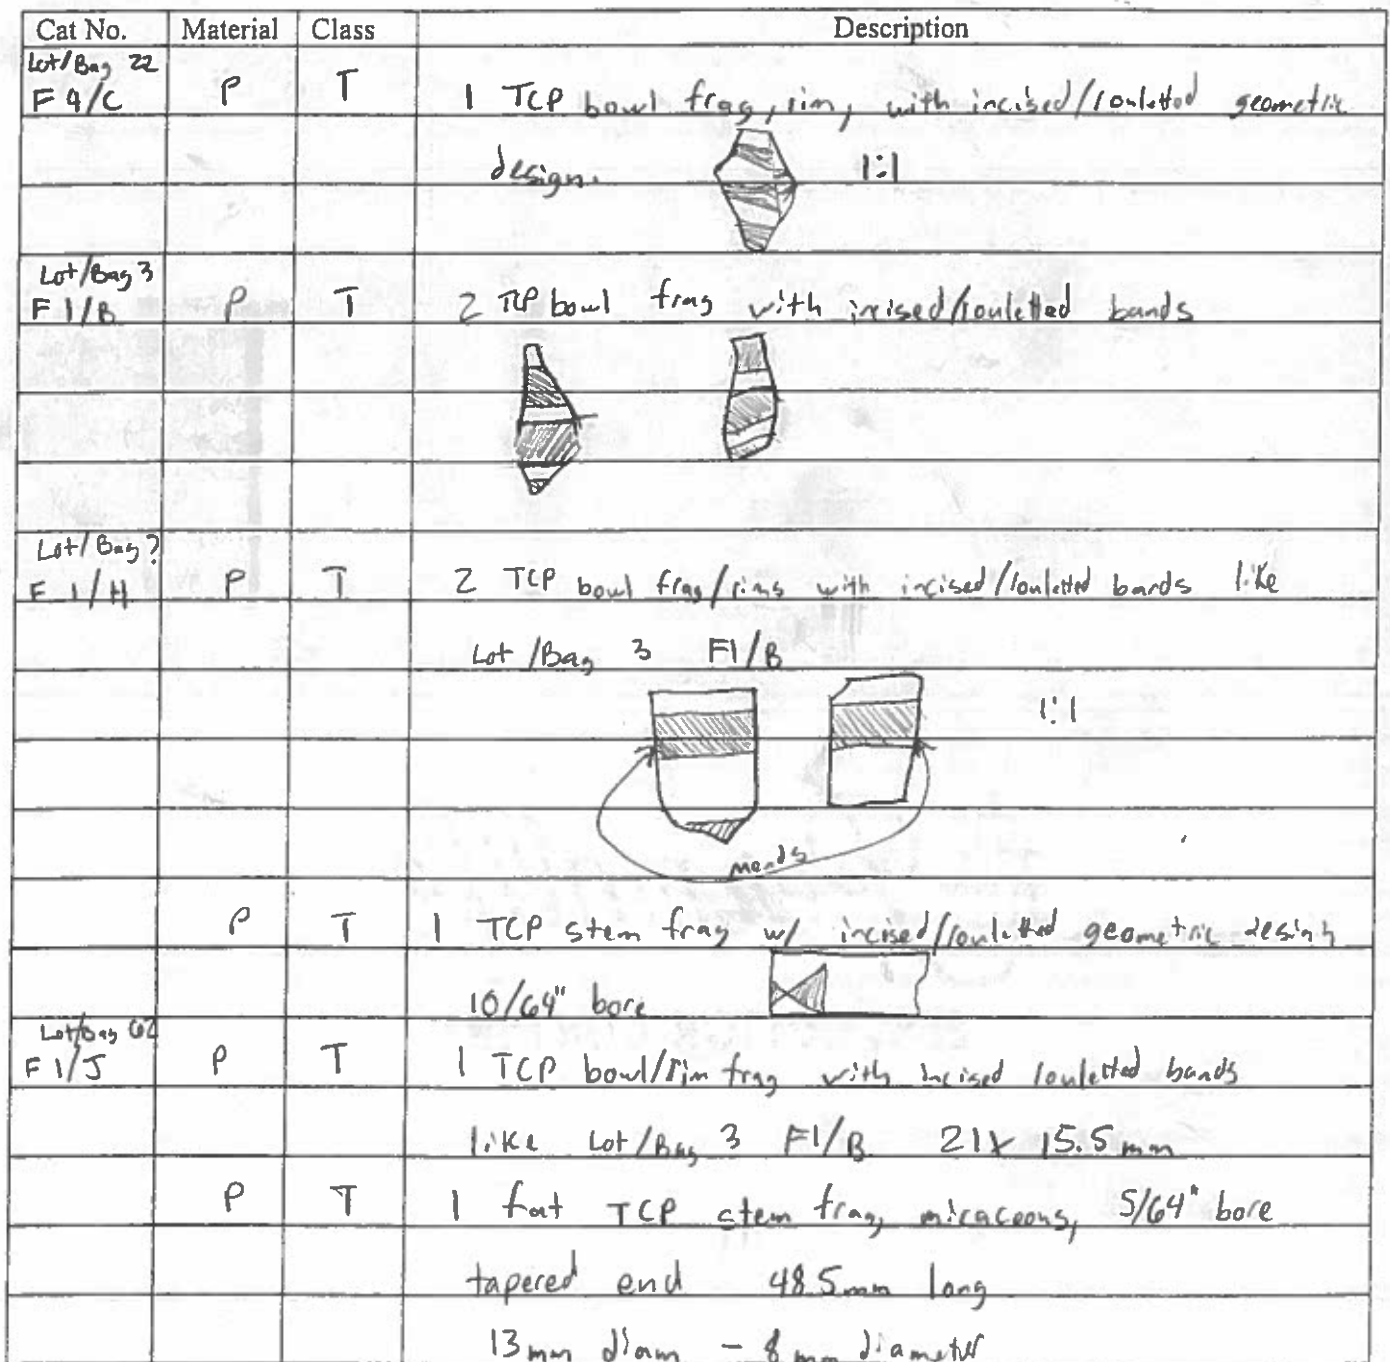 Cat No. Material Class Description
Lot/Bag 22
F 4/C P T 1 TCP bowl frag, rim, with incised/rouletted geometric
design. 1:1
Lot/Bag 3
F 1/B P T 2 TCP bowl frag with incised/rouletted bands
Lot/Bag ?
F 1/H P T 2 TCP bowl frag/rims with incised/rouletted bands like
Lot/Bag 3 F1/B
1:1
mends
P T 1 TCP stem frag w/ incised/rouletted geometric design
10/64" bore
Lot/Bag 62
F 1/J P T 1 TCP bowl/rim frag with incised rouletted bands
like Lot/Bag 3 F1/B 21x 15.5mm
P T 1 fat TCP stem frag, micaceous, 5/64" bore
tapered end 48.5mm long
13mm diam - 8mm diameter